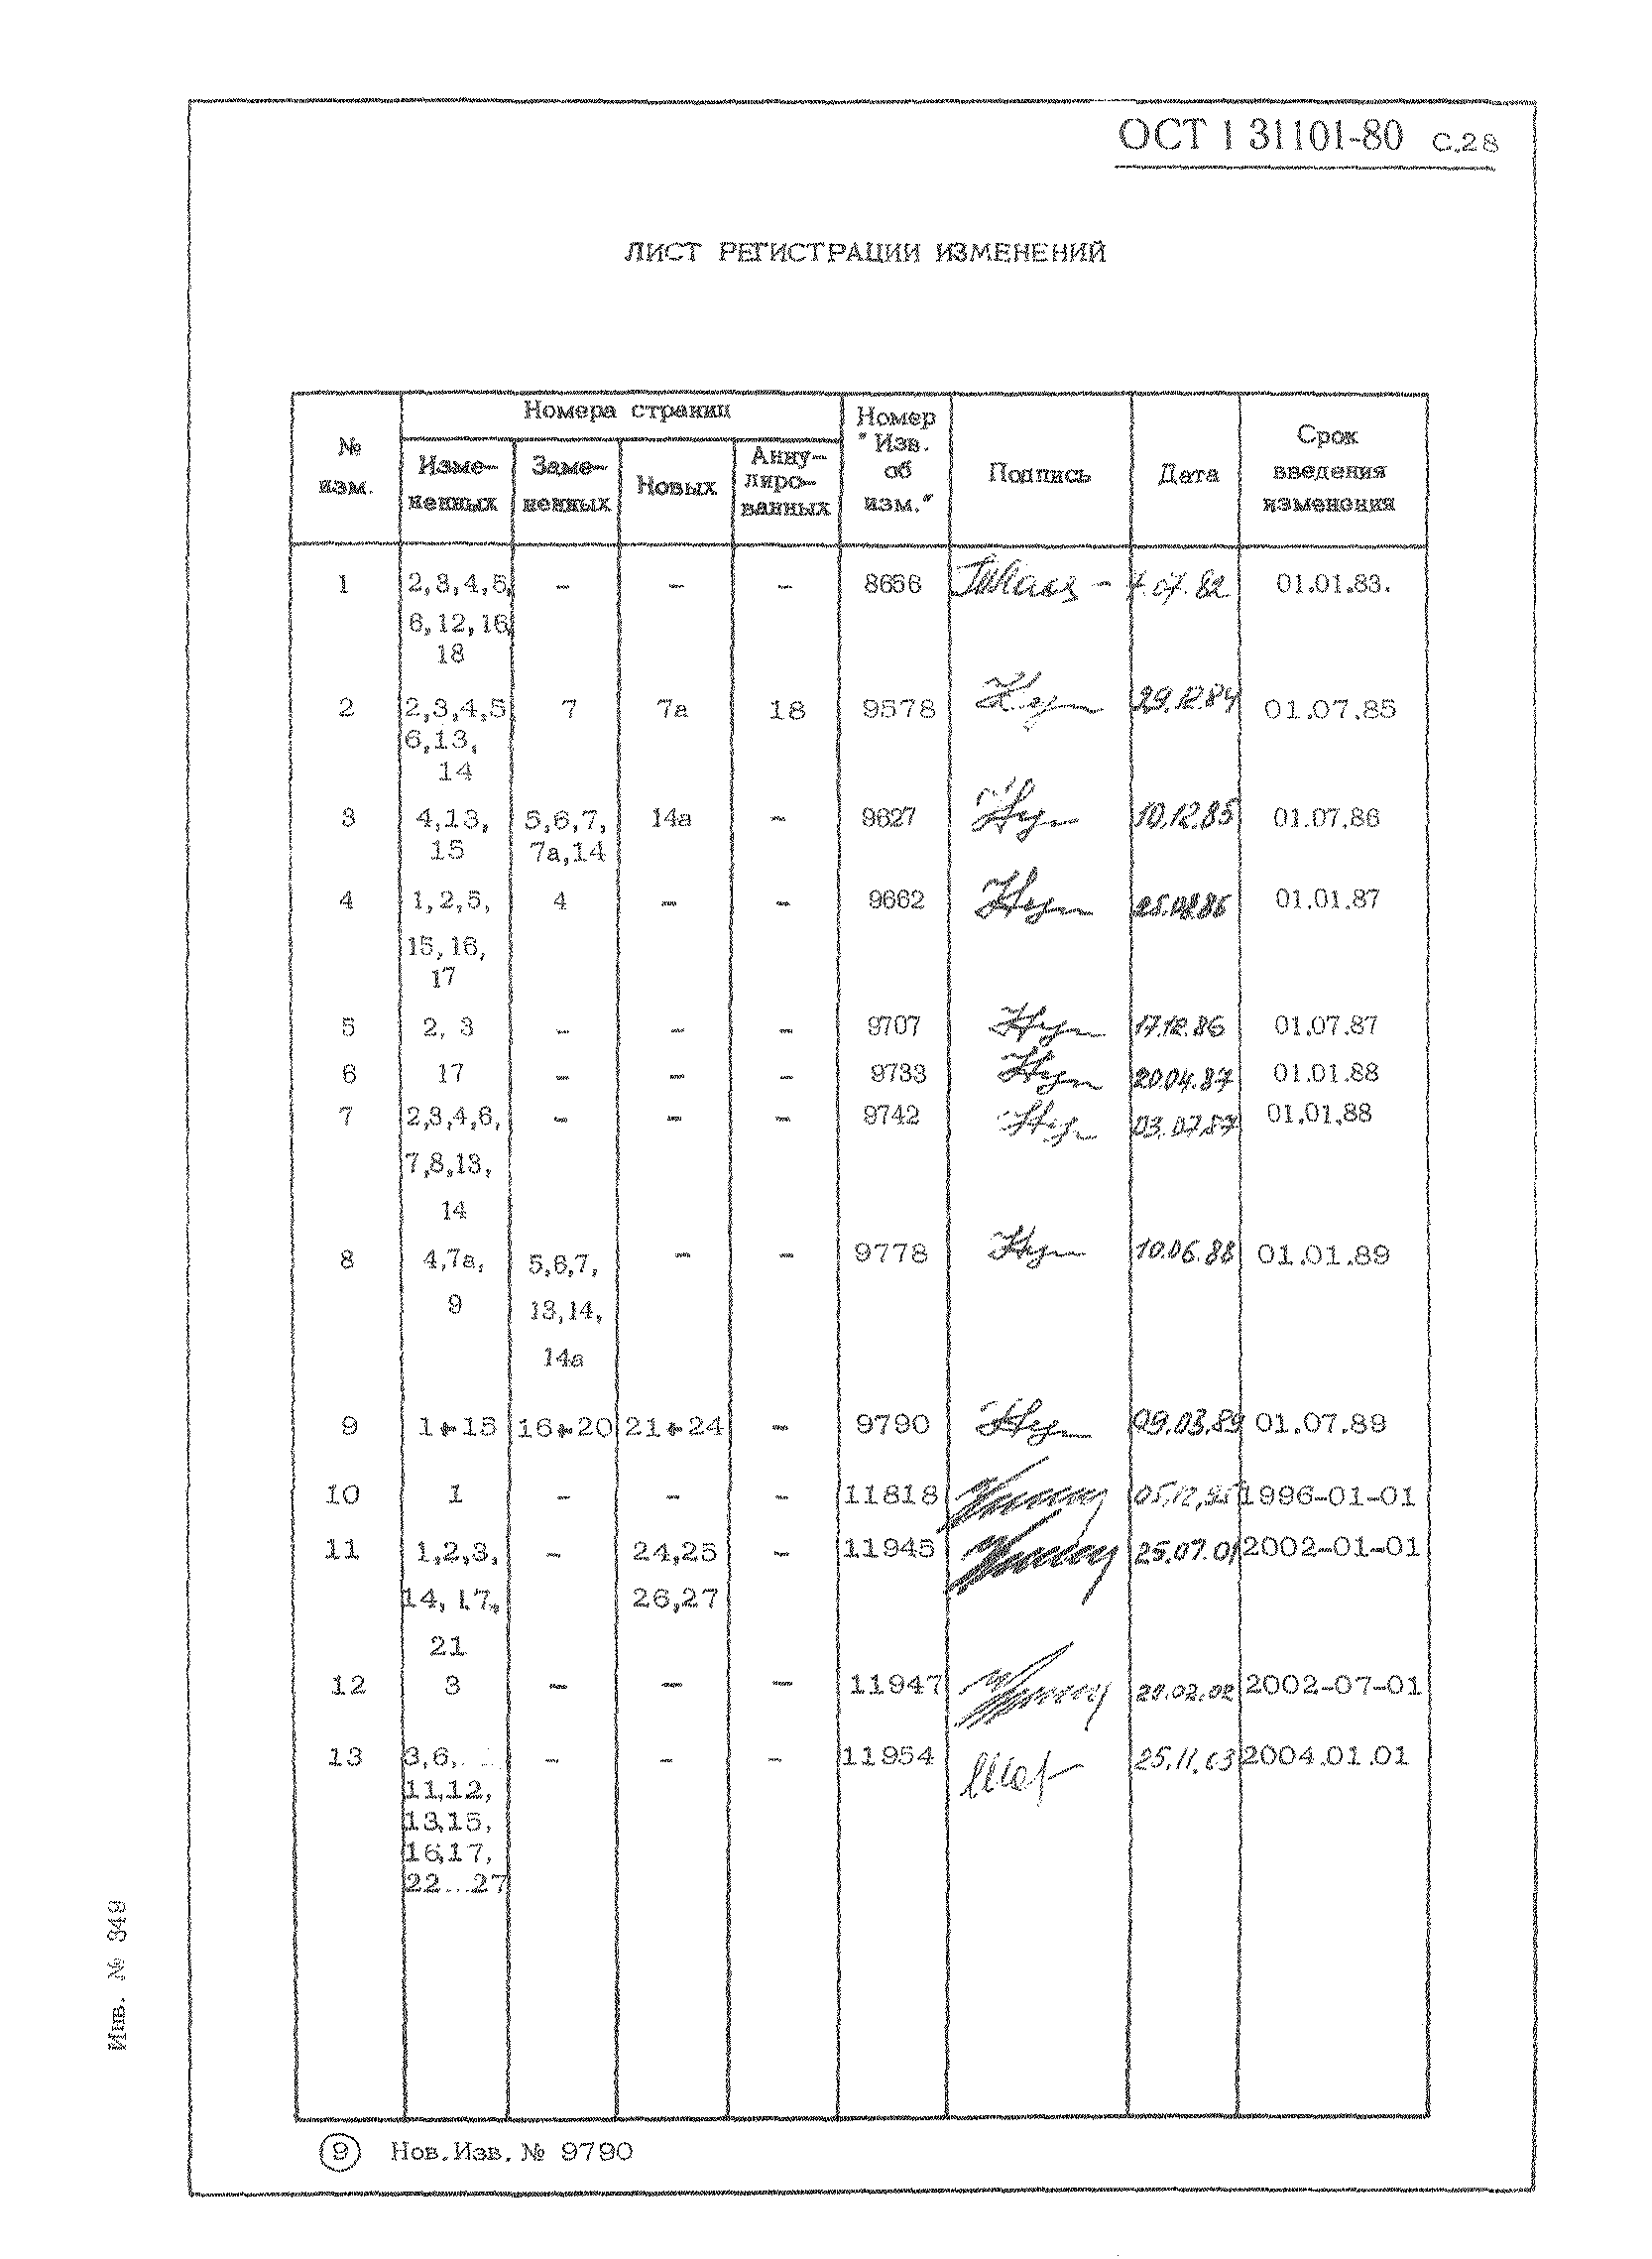 ОСТ 1 31101-80 С.28
ЛИСТ РЕГИСТРАЦИИ ИЗМЕНЕНИЙ
№ изм. Номера страниц Номер "Изв. об изм." Подпись Дата Срок введения изменения
Изме-ненных Заме-ненных Новых Анну-лиро-ванных
1 2,3,4,5, - - - 8656 7.07.82 01.01.83.
6,12,16,
18
2 2,3,4,5 7 7а 18 9578 29.12.84 01.07.85
6,13,
14
3 4,13, 5,6,7, 14а - 9627 10.12.85 01.07.86
15 7а,14
4 1,2,5, 4 - - 9662 25.08.86 01.01.87
15,16,
17
5 2, 3 - - - 9707 17.12.86 01.07.87
6 17 - - - 9733 20.04.87 01.01.88
7 2,3,4,6, - - - 9742 03.07.87 01.01.88
7,8,13,
14
8 4,7а, 5,6,7, - - 9778 10.06.88 01.01.89
9 13,14,
14а
9 1÷15 16÷20 21÷24 - 9790 09.03.89 01.07.89
10 1 - - - 11818 05.12.95 1996-01-01
11 1,2,3, - 24,25 - 11945 25.07.01 2002-01-01
14, 17, 26,27
21
12 3 - - - 11947 28.02.02 2002-07-01
13 3,6, - - - 11954 25.11.03 2004.01.01
11,12,
13,15,
16,17,
22...27
Инв. № 849
9 Нов.Изв. № 9790